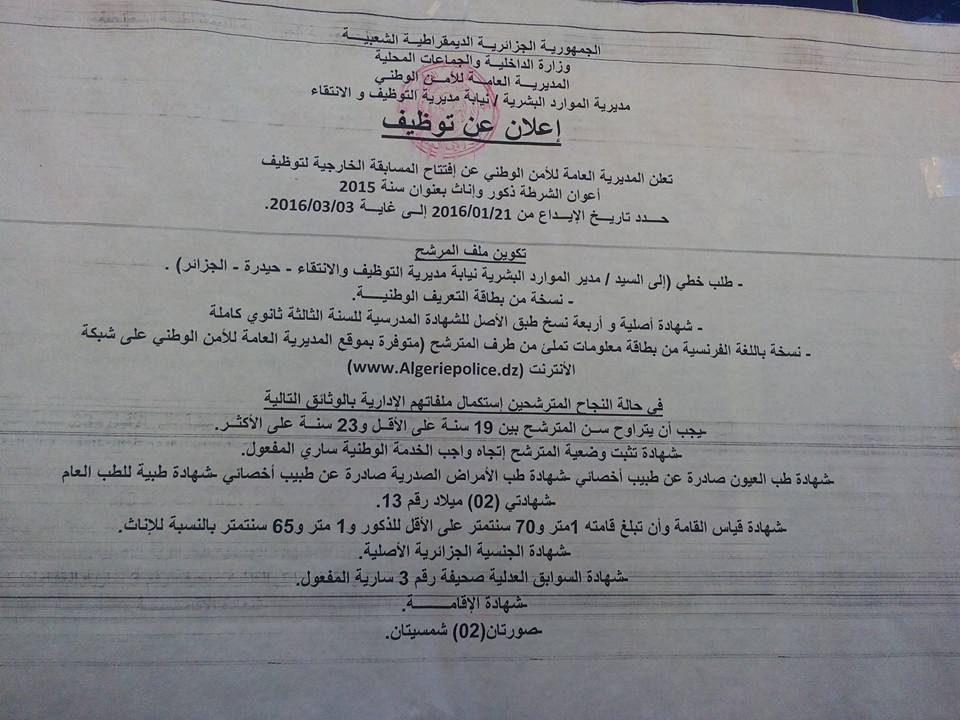 الجمهورية الجزائرية الديمقراطية الشعبية
وزارة الداخلية والجماعات المحلية
المديرية العامة للأمن الوطني
مديرية الموارد البشرية / نيابة مديرية التوظيف و الانتقاء
إعلان عن توظيف
تعلن المديرية العامة للأمن الوطني عن إفتتاح المسابقة الخارجية لتوظيف
أعوان الشرطة ذكور وإناث بعنوان سنة 2015
حدد تاريخ الإيداع من 2016/01/21 إلى غاية 2016/03/03.
تكوين ملف المرشح
- طلب خطي (إلى السيد / مدير الموارد البشرية نيابة مديرية التوظيف والانتقاء - حيدرة - الجزائر) .
- نسخة من بطاقة التعريف الوطنية.
- شهادة أصلية و أربعة نسخ طبق الأصل للشهادة المدرسية للسنة الثالثة ثانوي كاملة
- نسخة باللغة الفرنسية من بطاقة معلومات تملئ من طرف المترشح (متوفرة بموقع المديرية العامة للأمن الوطني على شبكة
الأنترنت (www.Algeriepolice.dz)
في حالة النجاح المترشحين إستكمال ملفاتهم الإدارية بالوثائق التالية
-يجب أن يتراوح سن المترشح بين 19 سنة على الأقل و23 سنة على الأكثر.
-شهادة تثبت وضعية المترشح إتجاه واجب الخدمة الوطنية ساري المفعول.
-شهادة طب العيون صادرة عن طبيب أخصائي -شهادة طب الأمراض الصدرية صادرة عن طبيب أخصائي -شهادة طبية للطب العام
-شهادتي (02) ميلاد رقم 13.
-شهادة قياس القامة وأن تبلغ قامته 1متر و70 سنتمتر على الأقل للذكور و1 متر و65 سنتمتر بالنسبة للإناث.
-شهادة الجنسية الجزائرية الأصلية.
-شهادة السوابق العدلية صحيفة رقم 3 سارية المفعول.
-شهادة الإقامة.
-صورتان(02) شمسيتان.